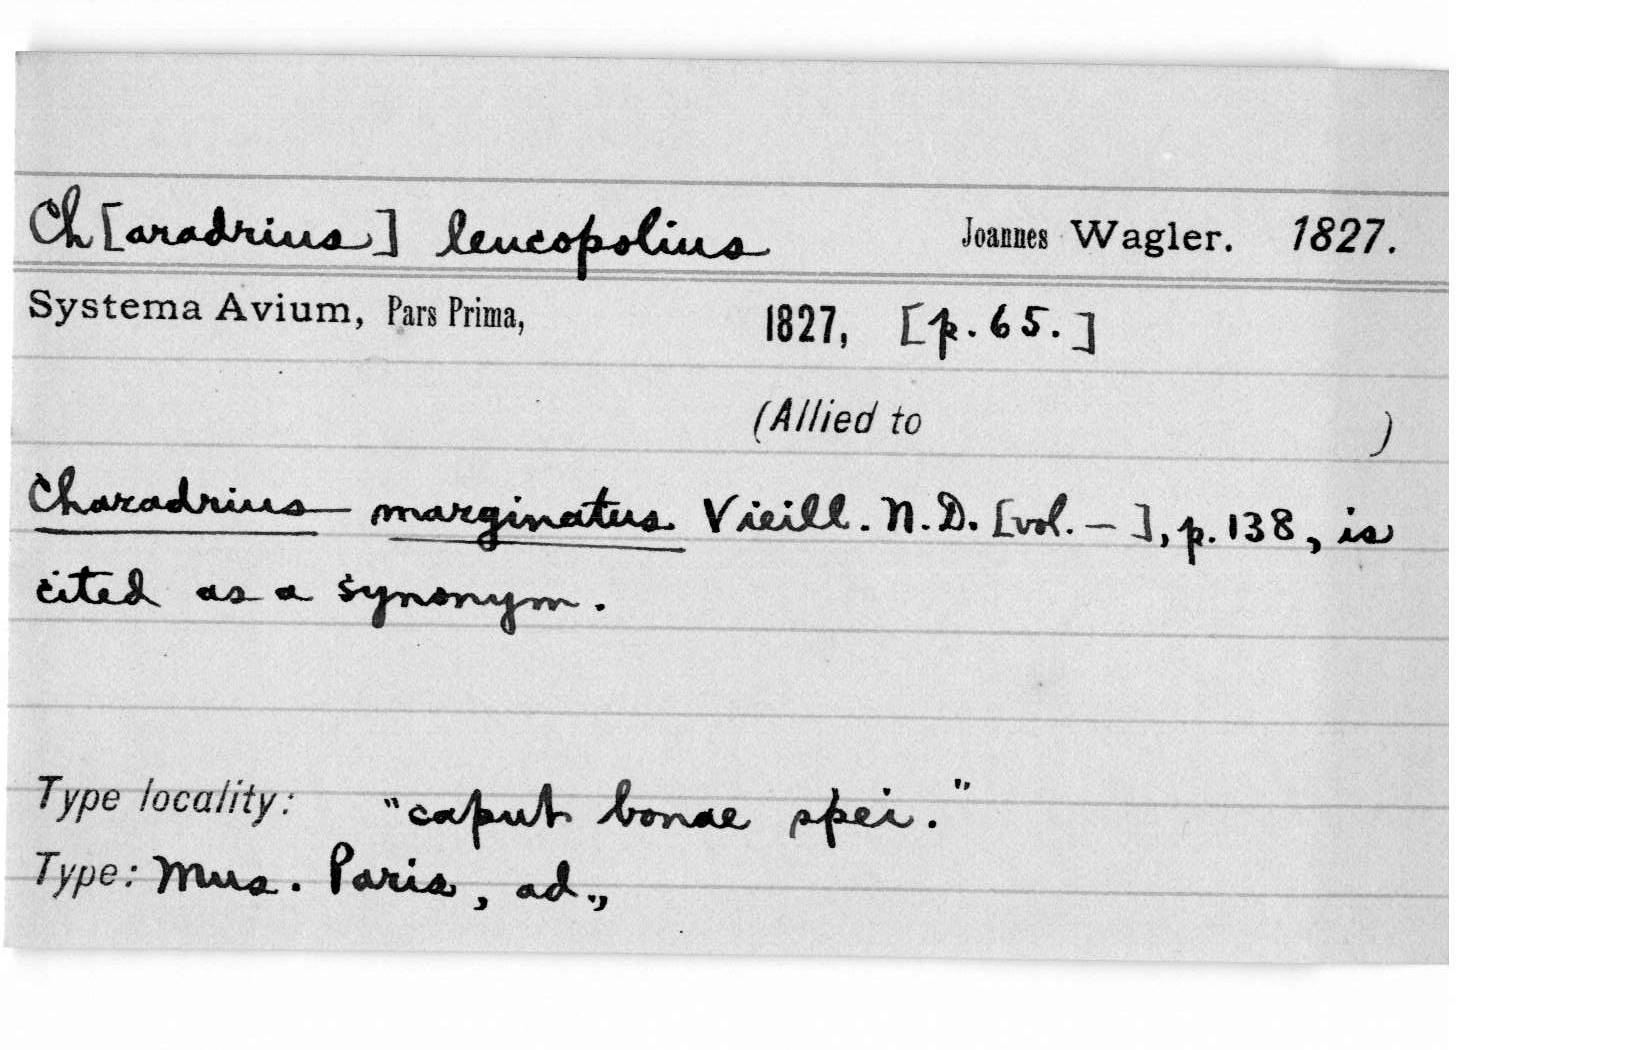 Ch[aradrius] leucopolius Joannes Wagler. 1827.
Systema Avium, Pars Prima, 1827, [p. 65.]
(Allied to )
Charadrius marginatus Vieill. N. D. [vol. – ], p. 138, is
cited as a synonym.
Type locality: "caput bonae spei."
Type: Mus. Paris, ad.,